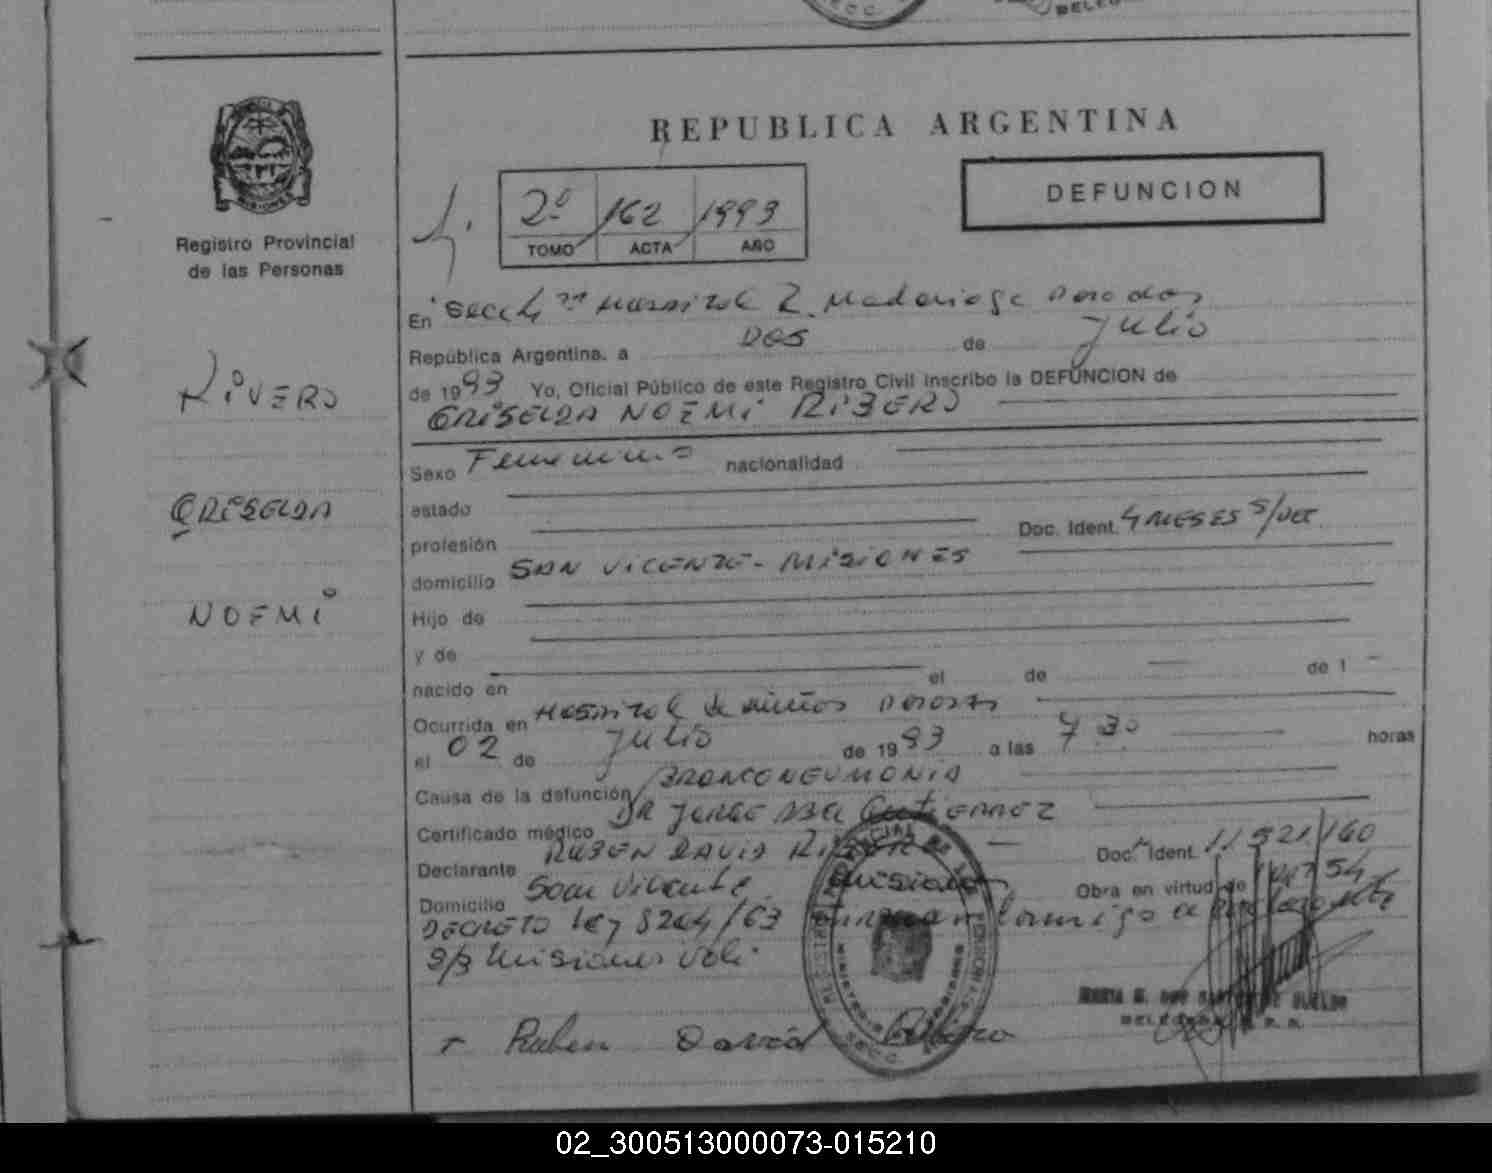 REPUBLICA ARGENTINA
DEFUNCION
2º 162 1993
TOMO ACTA AÑO
Registro Provincial
de las Personas
RiVERO
GRISELDA
NOEMi
En Secc 4 Hospital R. Madariaga Posadas
República Argentina, a DOS de Julio
de 1993 Yo, Oficial Público de este Registro Civil inscribo la DEFUNCION de
GRISELDA NOEMi RIBERO
Sexo Femenino nacionalidad
estado
profesión Doc. Ident. 4 MESES S/
domicilio SAN ViCENTE - MiSiONES
Hijo de
y de
nacido en el de de 1
Ocurrida en Hospital de niños Posadas
el 02 de Julio de 1993 a las 7 30 horas
Causa de la defunción BRONCONEUMONIA
Certificado médico DR JORGE GUTiERREZ
Declarante RUBEN DAVID Doc. Ident. 11
Domicilio San Vicente Misiones Obra en virtud de
DECRETO ley 8204/63
Misiones
Ruben David
SECC.
02_300513000073-015210